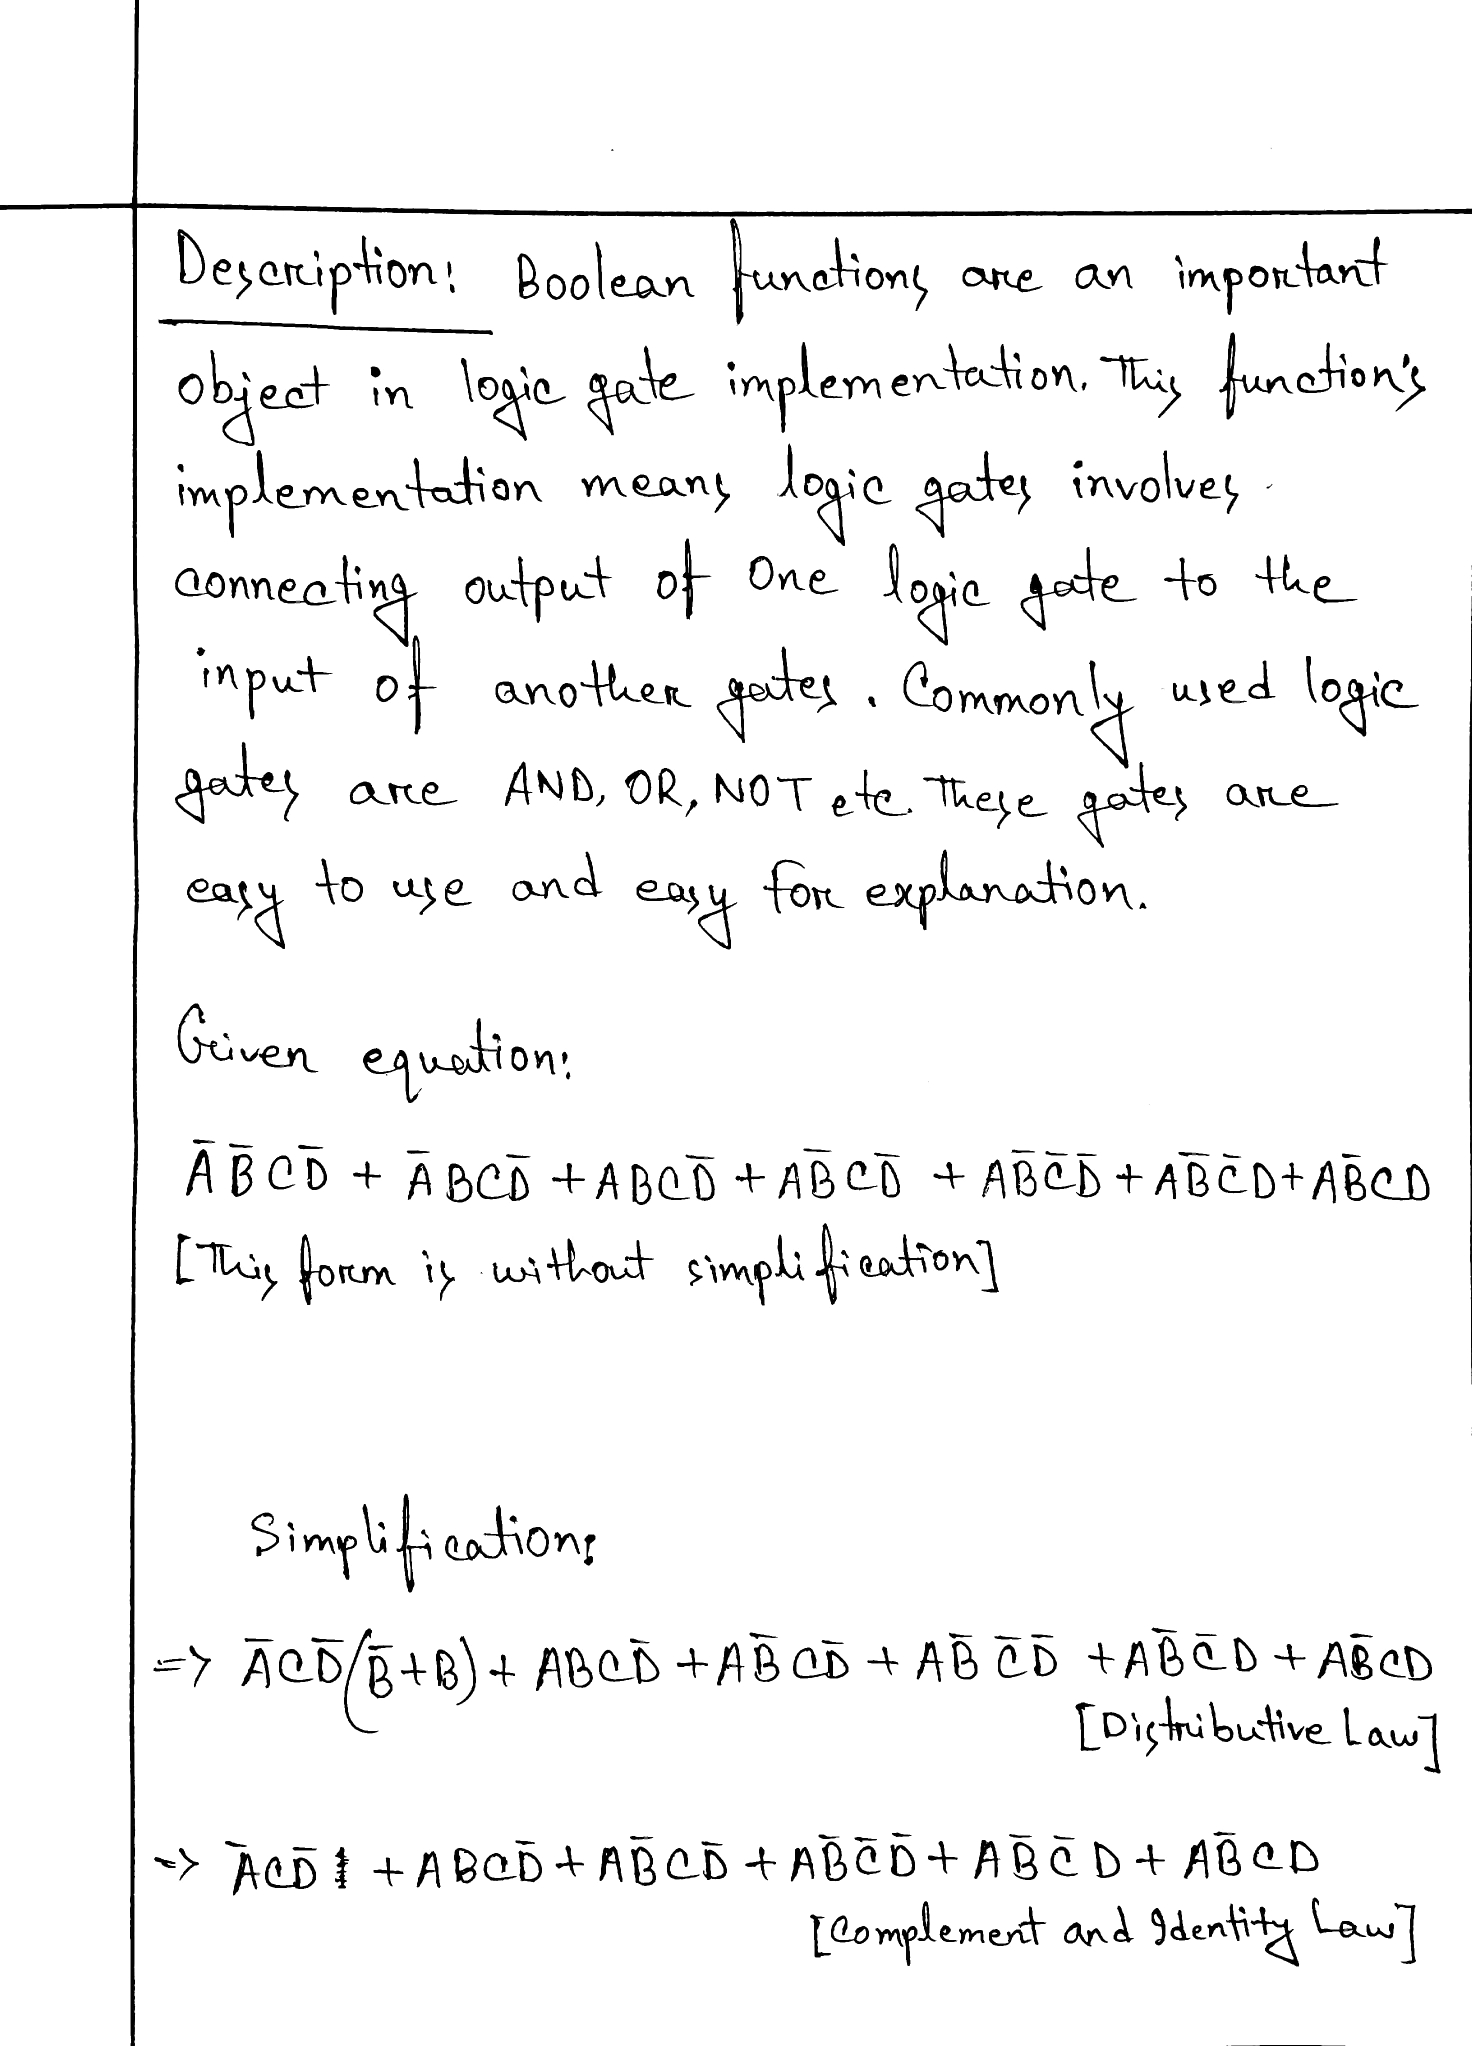 Description: Boolean functions are an important
object in logic gate implementation. This function's
implementation means logic gates involves
connecting output of One logic gate to the
input of another gates. Commonly used logic
gates are AND, OR, NOT etc. These gates are
easy to use and easy for explanation.
Given equation:
A̅B̅CD̅ + A̅BCD̅ + ABCD̅ + AB̅CD̅ + AB̅C̅D̅ + AB̅C̅D + AB̅CD
[This form is without simplification]
Simplification:
=> A̅CD̅(B̅+B) + ABCD̅ + AB̅CD̅ + AB̅C̅D̅ + AB̅C̅D + AB̅CD
[Distributive Law]
=> A̅CD̅ + ABCD̅ + AB̅CD̅ + AB̅C̅D̅ + AB̅C̅D + AB̅CD
[Complement and Identity Law]